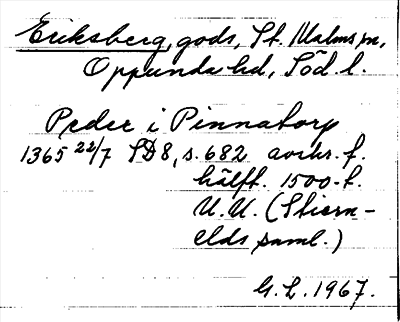 Eriksberg, gods, St. Malms sn,
Oppunda hd, Söd. l.
Peder i Pinnatorp
1365 22/7 SD 8, s. 682 avskr. f.
hälft. 1500-t.
U.U. (Stiern-
elds saml.)
G.L. 1967.